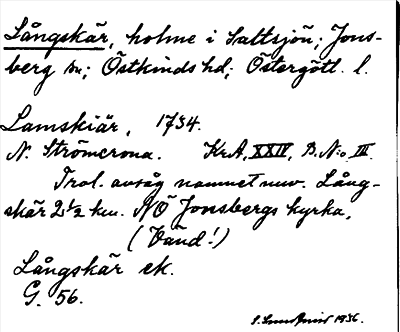 Långskär, holme i Saltsjön; Jons-
berg sn; Östkinds hd; Östergötl. l.
Lamskiär, 1734.
N. Strömcrona. Kr.A, XXIV, B. N:o III.
Trol. avsåg namnet nuv. Lång-
skär 2 1/2 km. NÖ Jonsbergs kyrka,
(Vänd!)
Långskär ek.
G. 56.
1936.